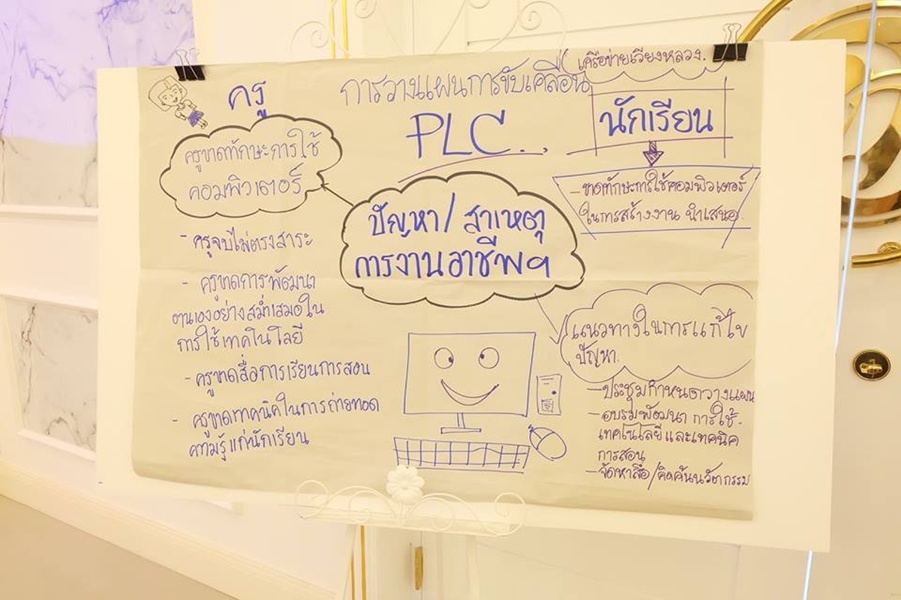 เครือข่ายเวียงหลวง.
การวางแผนการขับเคลื่อน
PLC...
ครู
ครูขาดทักษะการใช้
คอมพิวเตอร์
- ครูจบไม่ตรงสาระ
- ครูขาดการพัฒนา
ตนเองอย่างสม่ำเสมอใน
การใช้เทคโนโลยี
- ครูขาดสื่อการเรียนการสอน
- ครูขาดเทคนิคในการถ่ายทอด
ความรู้แก่นักเรียน
ปัญหา/สาเหตุ
การงานอาชีพฯ
นักเรียน
- ขาดทักษะการใช้คอมพิวเตอร์
ในการสร้างงาน นำเสนอ
แนวทางในการแก้ไข
ปัญหา.
- ประชุมกำหนดวางแผน
- อบรมพัฒนา การใช้
เทคโนโลยีและเทคนิค
การสอน
- จัดหาสื่อ/คิดค้นนวัตกรรม